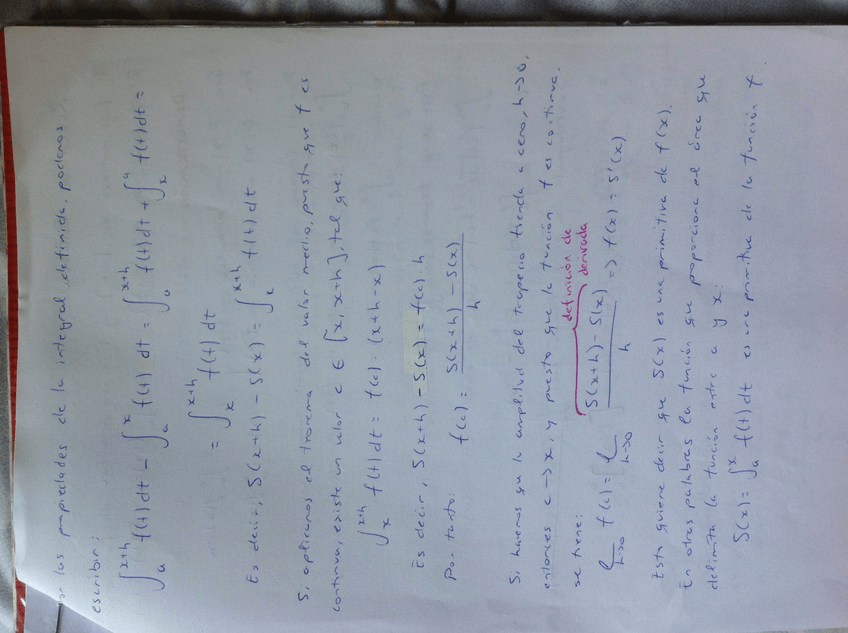 por las propiedades de la integral definida, podemos
escribir:
∫ₐˣ⁺ʰ f(t)dt - ∫ₐˣ f(t) dt = ∫ₐˣ⁺ʰ f(t)dt + ∫ₓᵃ f(t)dt =
= ∫ₓˣ⁺ʰ f(t) dt
Es decir, S(x+h) - S(x) = ∫ₓˣ⁺ʰ f(t) dt
Si aplicamos el teorema del valor medio, puesto que f es
continua, existe un valor c ∈ [x, x+h], tal que:
∫ₓˣ⁺ʰ f(t)dt = f(c) · (x+h-x)
Es decir, S(x+h) - S(x) = f(c) · h
Por tanto: f(c) = (S(x+h) - S(x)) / h
Si hacemos que la amplitud del trapecio tienda a cero, h→0,
entonces c→x, y puesto que la función f es continua,
se tiene:
definición de
derivada
lₕ→₀ f(c) = lₕ→₀ (S(x+h) - S(x)) / h => f(x) = S'(x)
Esto quiere decir que S(x) es una primitiva de f(x).
En otras palabras la función que proporciona el área que
delimita la función entre a y x:
S(x) = ∫ₐˣ f(t)dt es una primitiva de la función f.